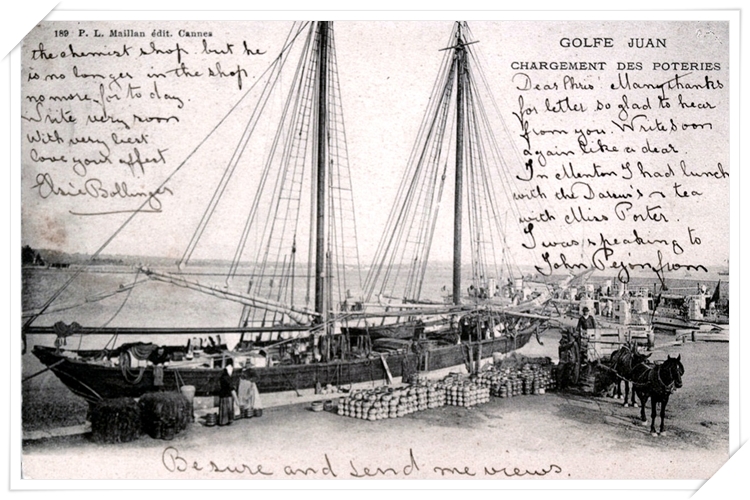 189 P. L. Maillan édit. Cannes
GOLFE JUAN
CHARGEMENT DES POTERIES
Dear Chris' Many thanks
for letter so glad to hear
from you. Write soon
again like a dear.
In Menton I had lunch
with the Darwin's & tea
with Miss Porter.
I was speaking to
John from
the chemist shop. but he
is no longer in the shop.
no more for to day.
Write very soon
With very best
love your's affect
Elsie Bollinger
Be sure and send me views.